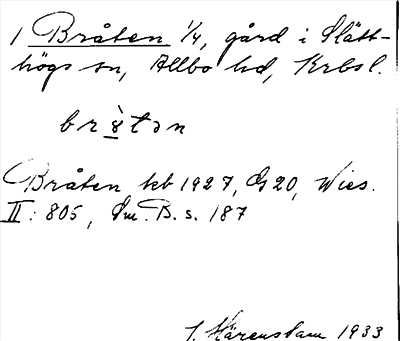 1 Bråten 1/4, gård i Slätt-
högs sn, Allbo hd, Krbs l.
br8̀tən
Bråten kb 1927, G 20, Wies.
II: 805, Sm. B. s. 187
J. Härenstam 1933